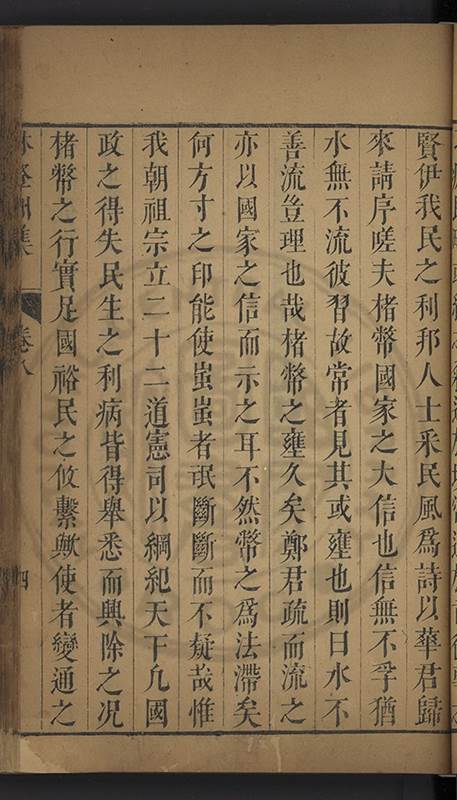 賢伊我民之利邦人士采民風爲詩以華君歸
來請序嗟夫楮幣國家之大信也信無不孚猶
水無不流彼習故常者見其或壅也則曰水不
善流豈理也哉楮幣之壅久矣鄭君疏而流之
亦以國家之信而示之耳不然幣之爲法滯矣
何方寸之印能使蚩蚩者氓斷斷而不疑哉惟
我朝祖宗立二十二道憲司以綱紀天下凢國
政之得失民生之利病皆得舉悉而興除之况
楮幣之行實足國裕民之攸繫歟使者變通之
林登州集 卷八 四